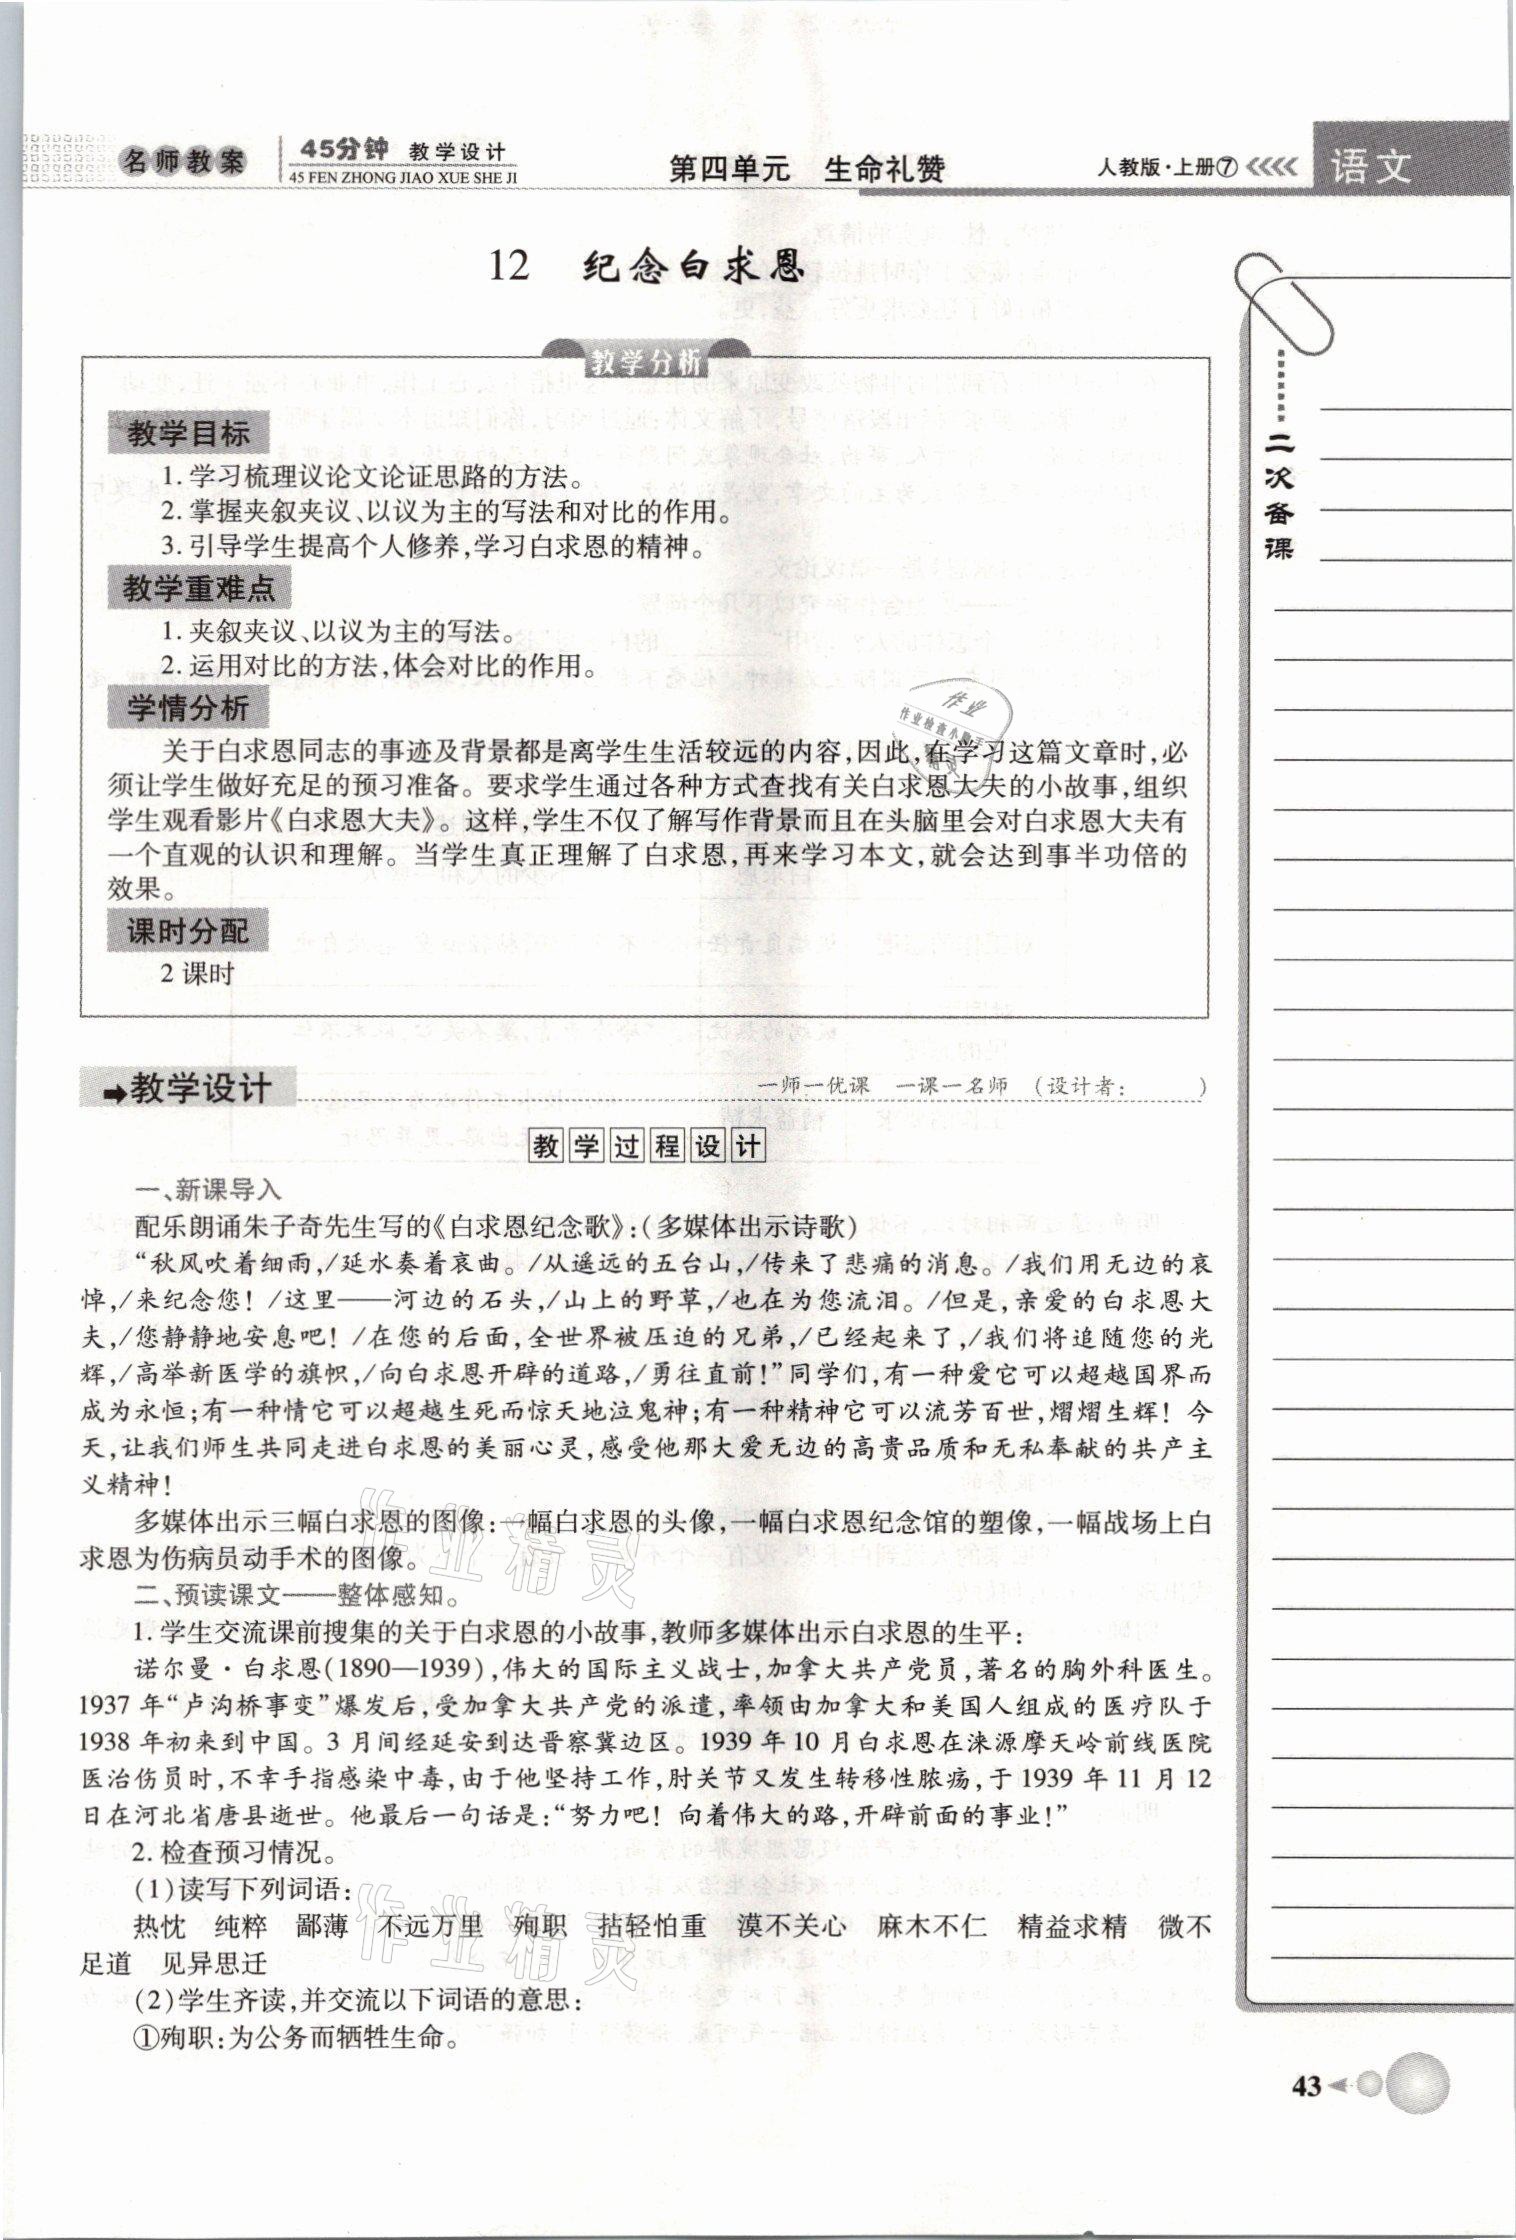 名师教案 45分钟 教学设计
45 FEN ZHONG JIAO XUE SHE JI
第四单元 生命礼赞
人教版·上册⑦
语文
12 纪念白求恩
教学分析
教学目标
1. 学习梳理议论文论证思路的方法。
2. 掌握夹叙夹议、以议为主的写法和对比的作用。
3. 引导学生提高个人修养,学习白求恩的精神。
教学重难点
1. 夹叙夹议、以议为主的写法。
2. 运用对比的方法,体会对比的作用。
学情分析
关于白求恩同志的事迹及背景都是离学生生活较远的内容,因此,在学习这篇文章时,必
须让学生做好充足的预习准备。要求学生通过各种方式查找有关白求恩大夫的小故事,组织
学生观看影片《白求恩大夫》。这样,学生不仅了解写作背景而且在头脑里会对白求恩大夫有
一个直观的认识和理解。当学生真正理解了白求恩,再来学习本文,就会达到事半功倍的
效果。
课时分配
2 课时
教学设计
一师一优课 一课一名师 (设计者: )
教学过程设计
一、新课导入
配乐朗诵朱子奇先生写的《白求恩纪念歌》:(多媒体出示诗歌)
“秋风吹着细雨,/延水奏着哀曲。/从遥远的五台山,/传来了悲痛的消息。/我们用无边的哀
悼,/来纪念您!/这里——河边的石头,/山上的野草,/也在为您流泪。/但是,亲爱的白求恩大
夫,/您静静地安息吧!/在您的后面,全世界被压迫的兄弟,/已经起来了,/我们将追随您的光
辉,/高举新医学的旗帜,/向白求恩开辟的道路,/勇往直前!”同学们,有一种爱它可以超越国界而
成为永恒;有一种情它可以超越生死而惊天地泣鬼神;有一种精神它可以流芳百世,熠熠生辉! 今
天,让我们师生共同走进白求恩的美丽心灵,感受他那大爱无边的高贵品质和无私奉献的共产主
义精神!
多媒体出示三幅白求恩的图像:一幅白求恩的头像,一幅白求恩纪念馆的塑像,一幅战场上白
求恩为伤病员动手术的图像。
二、预读课文——整体感知。
1. 学生交流课前搜集的关于白求恩的小故事,教师多媒体出示白求恩的生平:
诺尔曼·白求恩(1890—1939),伟大的国际主义战士,加拿大共产党员,著名的胸外科医生。
1937 年“卢沟桥事变”爆发后,受加拿大共产党的派遣,率领由加拿大和美国人组成的医疗队于
1938 年初来到中国。3 月间经延安到达晋察冀边区。1939 年 10 月白求恩在涞源摩天岭前线医院
医治伤员时,不幸手指感染中毒,由于他坚持工作,肘关节又发生转移性脓疡,于 1939 年 11 月 12
日在河北省唐县逝世。他最后一句话是:“努力吧! 向着伟大的路,开辟前面的事业!”
2. 检查预习情况。
(1)读写下列词语:
热忱 纯粹 鄙薄 不远万里 殉职 拈轻怕重 漠不关心 麻木不仁 精益求精 微不
足道 见异思迁
(2)学生齐读,并交流以下词语的意思:
①殉职:为公务而牺牲生命。
二次备课
43
作业
作业检查小助手
精灵
作业精灵
作业精灵